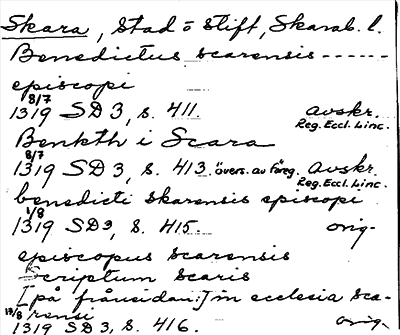 Skara, Stad o Stift, Skarab. l.
Benedictus scarensis ------
episcopi
8/7
1319 SD 3, s. 411. avskr.
Reg. Eccl. Linc.
Benkth i Scara
8/7
1319 SD 3, s. 413. övers. av föreg. Avskr.
Reg. Eccl. Linc.
benedicti skarensis episcopi
1/8
1319 SD3, s. 415. orig.
episcopus scarensis
Scriptum scaris
[på frånsidan:] in ecclesia sca-
rensi
13/8
1319 SD 3, s. 416. orig.